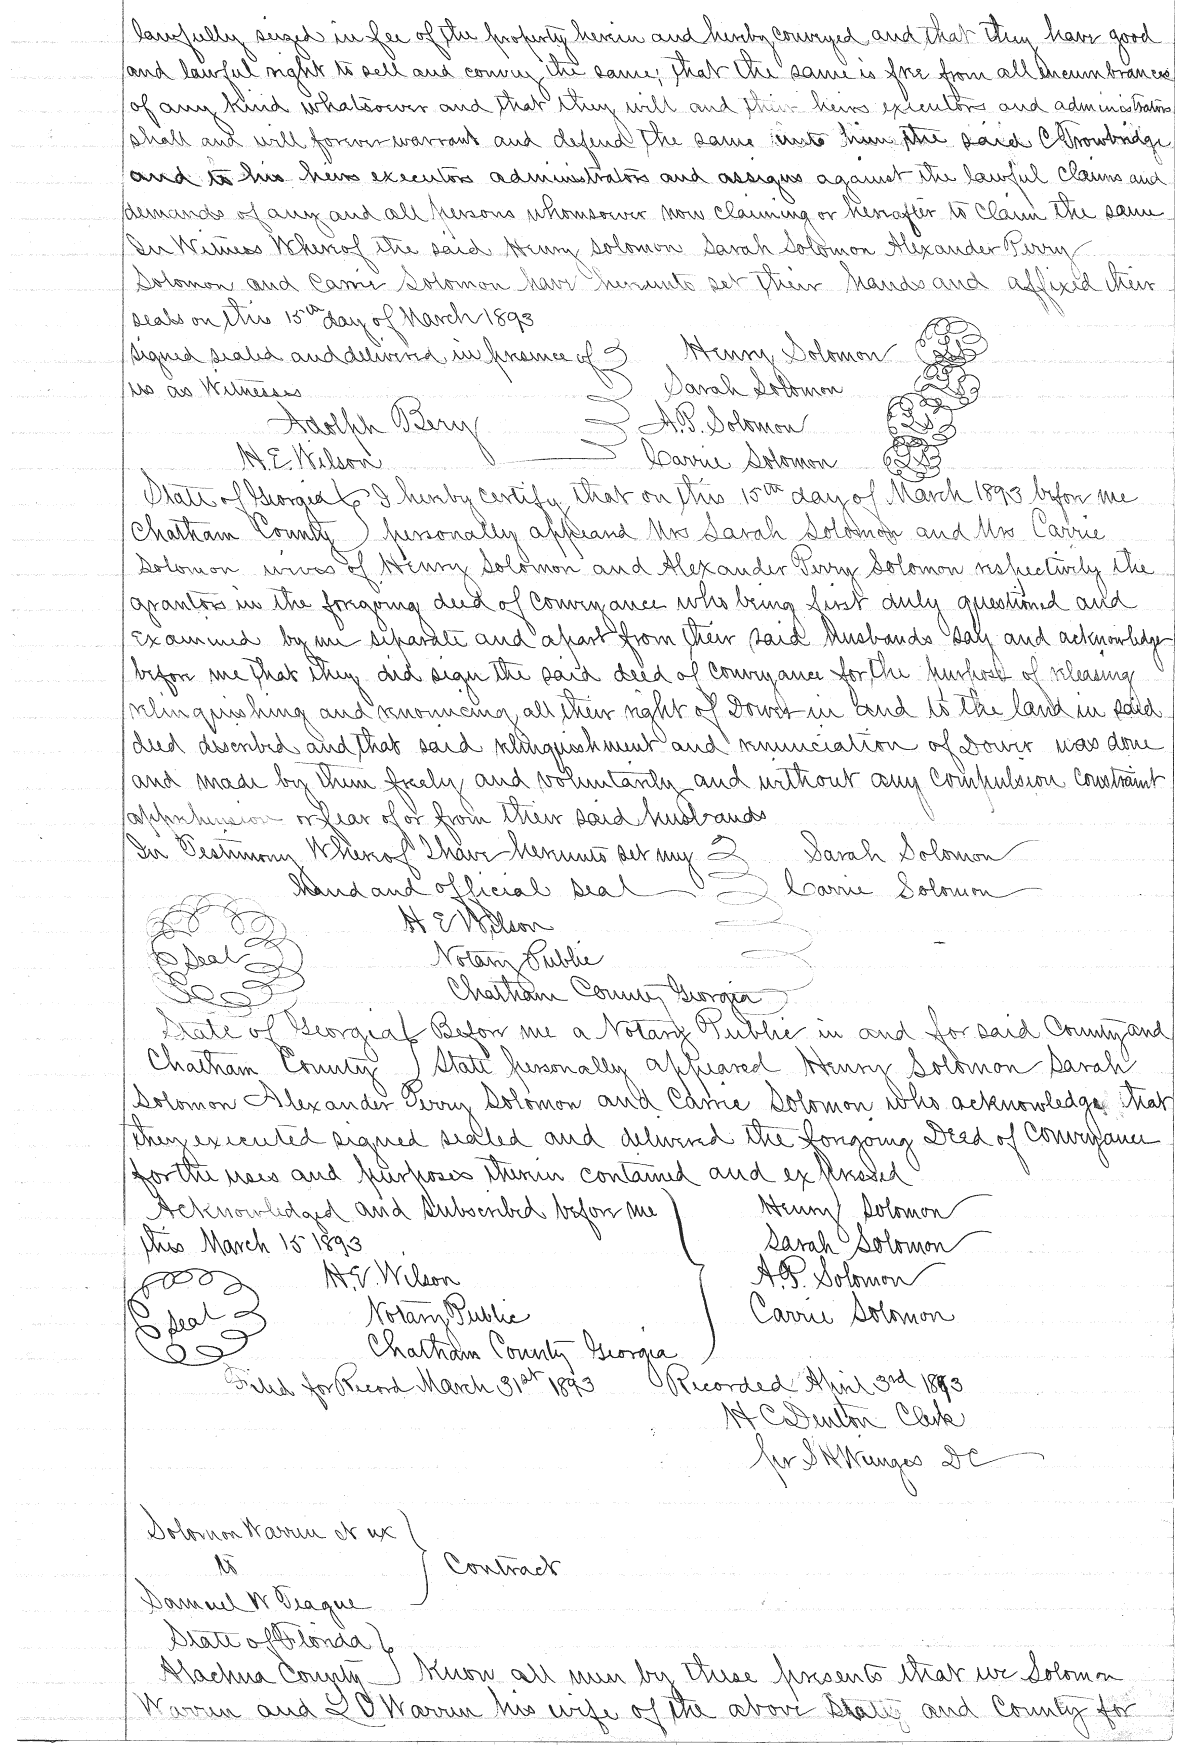 lawfully seized in fee of the property herein and hereby conveyed and that they have good
and lawful right to sell and convey the same; that the same is free from all encumbrances
of any kind whatsoever and that they will and their heirs executors and administrators
shall and will forever warrant and defend the same unto him the said C Trowbridge
and to his heirs executors administrators and assigns against the lawful claims and
demands of any and all persons whomsoever now claiming or hereafter to claim the same
In Witness Whereof the said Henry Solomon Sarah Solomon Alexander Perry
Solomon and Carrie Solomon have hereunto set their hands and affixed their
seals on this 15th day of March 1893
Signed sealed and delivered in presence of Henry Solomon Seal
us as Witnesses Sarah Solomon Seal
Adolph Bery A.P. Solomon Seal
H.E. Wilson Carrie Solomon Seal
State of Georgia I hereby certify that on this 15th day of March 1893 before me
Chatham County personally appeard Mrs Sarah Solomon and Mrs Carrie
Solomon wives of Henry Solomon and Alexander Perry Solomon respectively the
grantors in the foregoing deed of conveyance who being first duly questioned and
examined by me separate and apart from their said husbands say and acknowledge
before me that they did sign the said deed of conveyance for the purpose of releasing
relinquishing and renouncing all their right of Dower in and to the land in said
deed described and that said relinquishment and renunciation of Dower was done
and made by them freely and voluntarily and without any compulsion constraint
apprehension or fear of or from their said husbands
In Testimony Whereof I have hereunto set my Sarah Solomon
hand and official seal Carrie Solomon
H E Wilson
Seal Notary Public
Chatham County Georgia
State of Georgia Before me a Notary Public in and for said County and
Chatham County State personally appeared Henry Solomon Sarah
Solomon Alexander Perry Solomon and Carrie Solomon who acknowledge that
they executed signed sealed and delivered the foregoing Deed of Conveyance
for the uses and purposes therein contained and expressed
Acknowledged and Subscribed before me Henry Solomon
this March 15 1893 Sarah Solomon
H.E. Wilson A.P. Solomon
Seal Notary Public Carrie Solomon
Chatham County Georgia
Filed for Record March 31st 1893 Recorded April 3rd 1893
H C Denton Clerk
per S H Wienges DC
Solomon Warren et ux
to Contract
Samuel W Teague
State of Florida
Alachua County Know all men by these presents that we Solomon
Warren and L O Warren his wife of the above State and County for